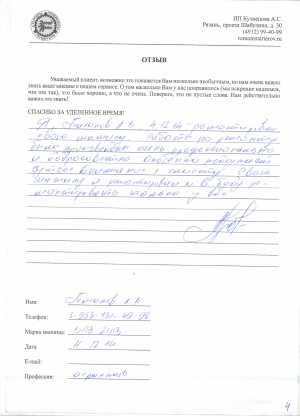 ИП Кузнецова А.С.
Рязань, проезд Шабулина, д. 30
(4912) 99-40-99
remontstarterov.ru
ОТЗЫВ
Уважаемый клиент, возможно это покажется Вам несколько необычным, но нам очень важно
знать ваше мнение о нашем сервисе. О том насколько Вам у нас понравилось (мы искренне надеемся,
что это так), что было хорошо, а что не очень. Поверьте, эти не пустые слова. Нам действительно
важно это знать!
СПАСИБО ЗА УДЕЛЕННОЕ ВРЕМЯ!
Я 4.12.14 - ремонтировал
свою машину. Работы по ремонту
были произведены очень профессионально
и добросовестно
внимание к клиенту. Свою
машину я и буду ре-
монтировать только у вас
Имя:
Телефон:
Марка машины: ВАЗ
Дата 4.12.14
E-mail:
Профессия:
4